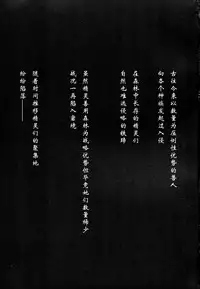 古往今来以数量为压倒性优势的兽人
向各个种族发起过入侵
在森林中长存的精灵们
自然也难逃侵略的铁蹄
虽然精灵善用森林为战略优势但毕竟她们数量稀少
战况一再陷入窘境
随着时间推移精灵们的聚集地
纷纷陷落——